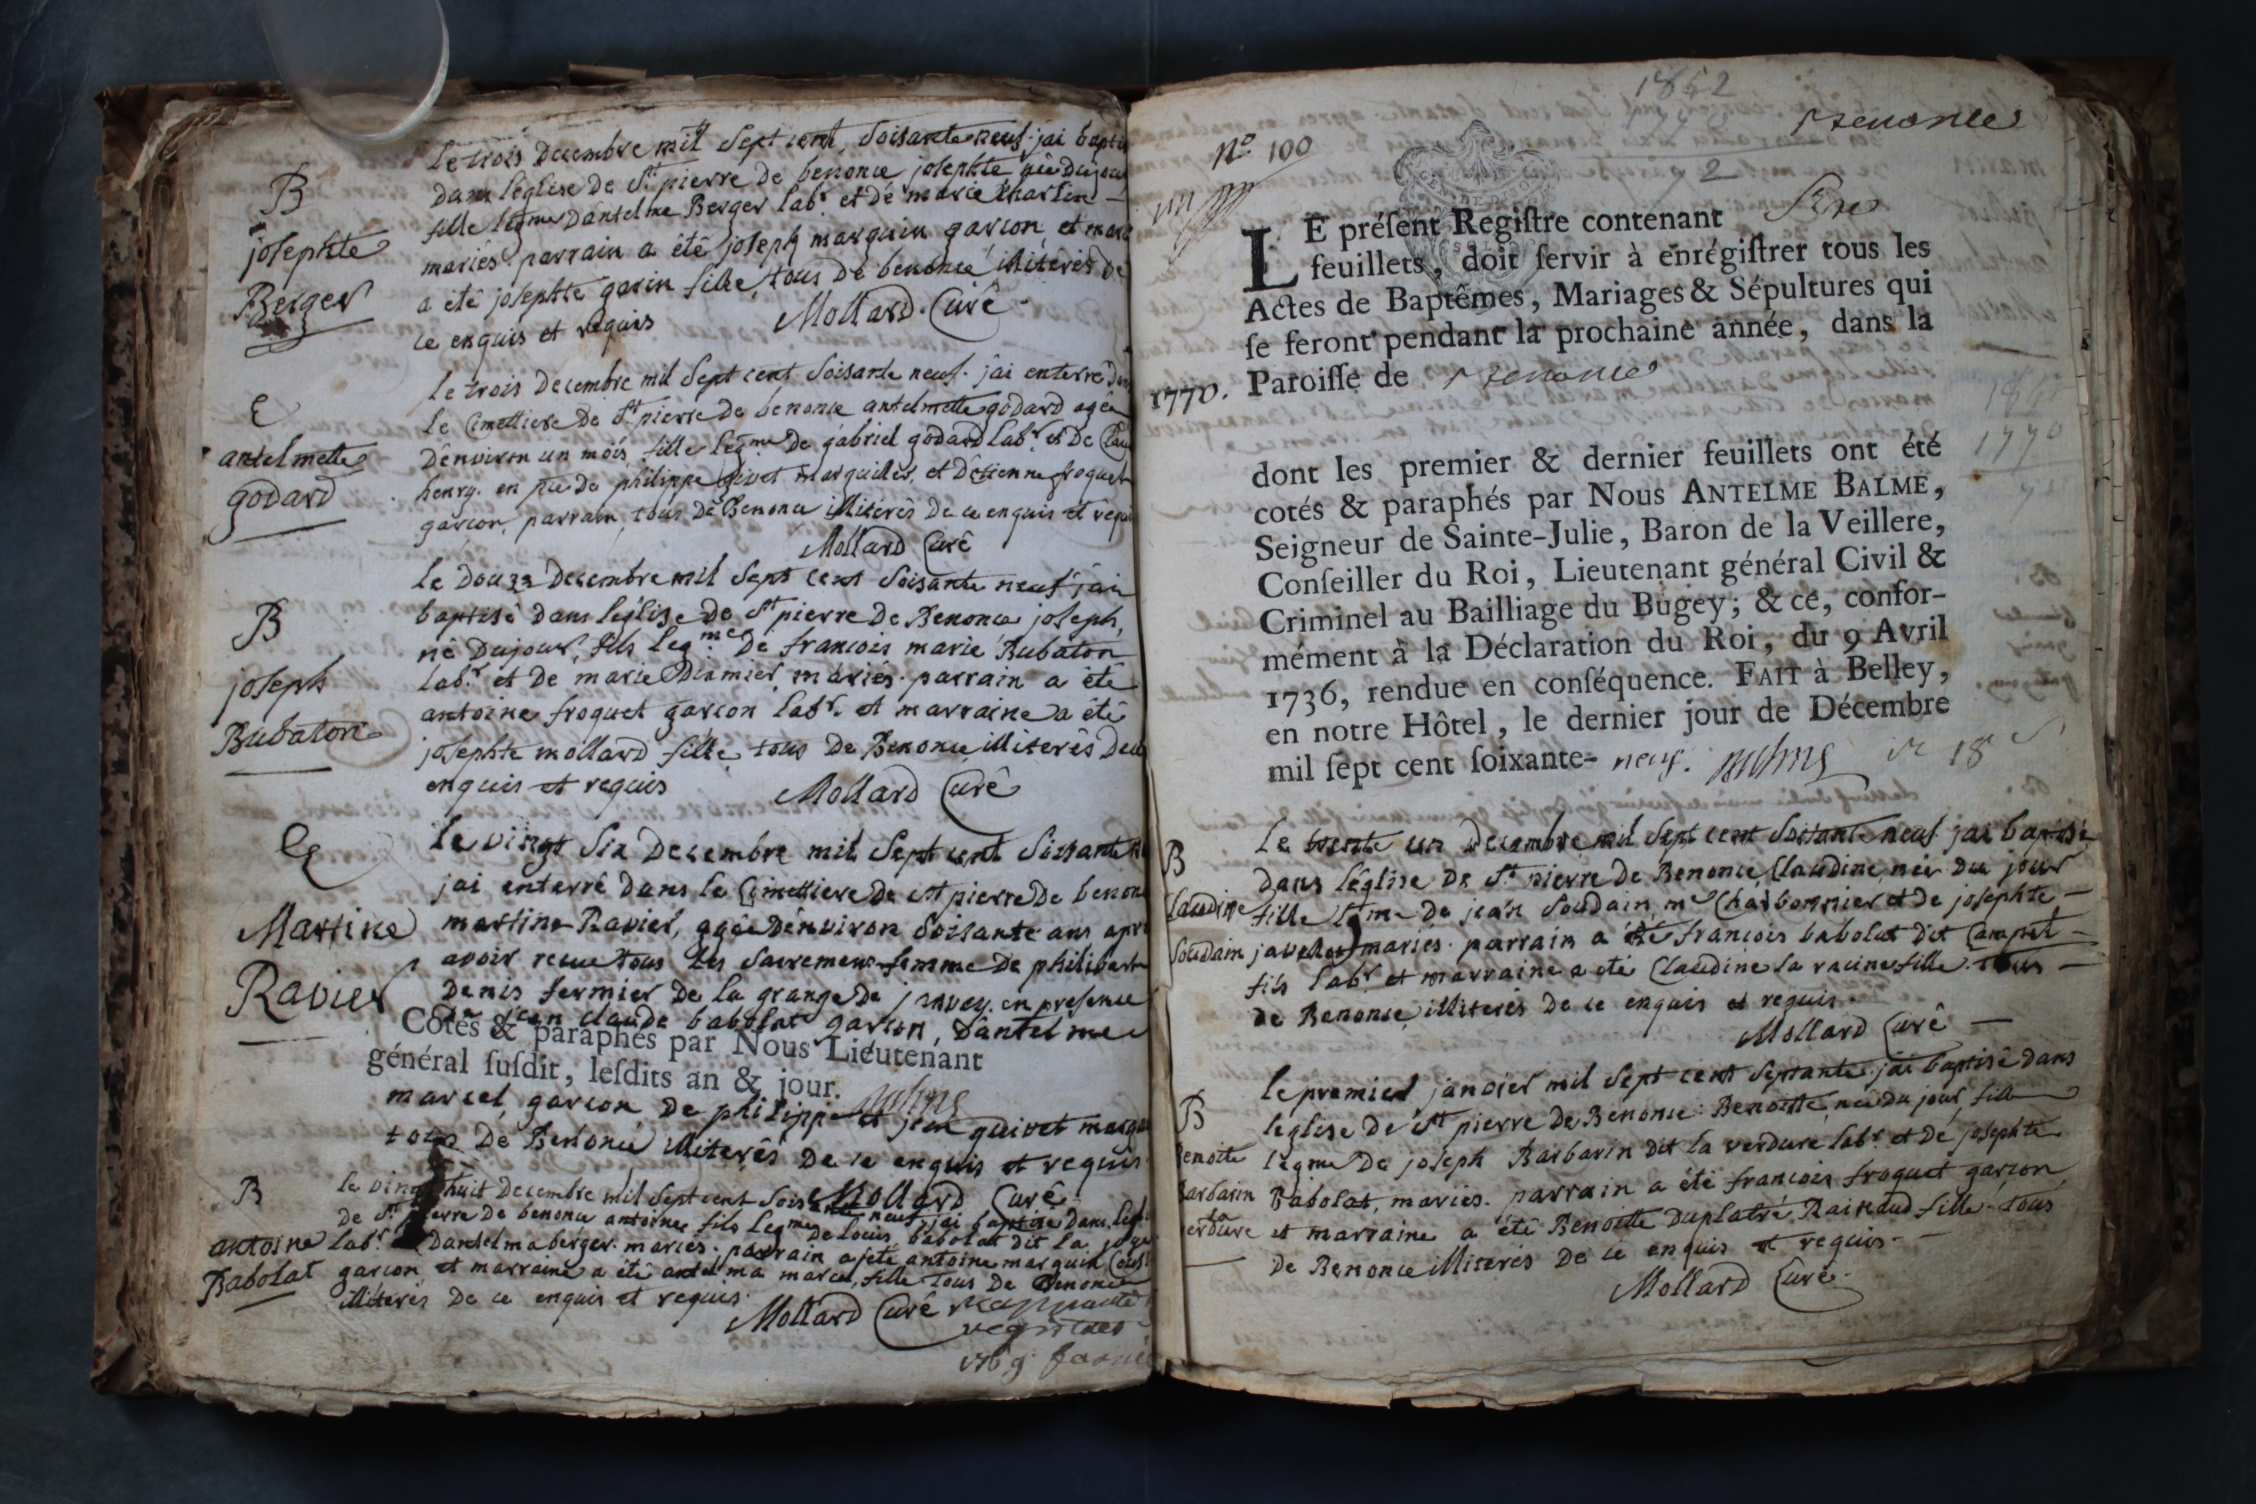 B
josephte
Berger
le trois Decembre mil sept cent, soisante neuf. jai bapti
dans l'église de St pierre de benonce josephte née dujour
fille legme Dantelme Berger labr. et de marie Charlin
mariés. parrain a été joseph marquin garcon, et mar
a été josephte garin fille, tous de benonce illiterés de
ce enquis et requis Mollard Curé.
E
antelmette
godard
le trois Decembre mil sept cent soisante neuf. jai enterré dans
le Cimettiere de St pierre de benonce antelmette godard agée
d'environ un mois fille legme De gabriel godard labr. et de Clau
henry. en pce de philippe quivet marguiller, et d'etienne froquet
garcon, parrain, tous de Benonce illiterés de ce enquis et requis
Mollard Curé
B
joseph
Bubaton
le douze Decembre mil sept cent soisante neuf jai
baptisé dans l'église de St pierre de Benonce joseph,
né dujour, fils legme. De francois marie Bubaton
labr. et de marie mariés. parrain a été
antoine froquet garcon labr. et marraine a été
josephte mollard fille, tous de Benonce illiterés de ce
enquis et requis Mollard Curé
E
Martine
Ravier
le vingt six Decembre mil sept cent soisante
jai enterré dans le Cimettiere de St pierre de benon
martine Ravier, agée d'environ soisante ans apr
avoir recu tous les sacremens femme de philibert
Denis fermier de la grange de janvey. en presence
De jean claude babolat garcon, Dantelme
Cotés & paraphés par Nous Lieutenant
général susdit, lesdits an & jour.
marcel, garcon de philippe et jean quivet marqu
tous De Benonce illiterés de ce enquis et requis
Mollard Curé
B
antoine
Babolat
le vingt huit Decembre mil sept cent soisante neuf jai baptisé dans l'egl
de St pierre de benonce antoine fils legme De locus babolat dit la
labr. Dantelma berger. mariés. parrain a eté antoine marquin
garcon et marraine a été antelma marcel, fille tous de Benonce
illiterés de ce enquis et requis.
Mollard Curé
1769.
1852
Benonce
No 100
2
LE présent Registre contenant
feuillets, doit servir à enrégistrer tous les
Actes de Baptêmes, Mariages & Sépultures qui
se feront pendant la prochaine année, dans la
1770. Paroisse de Benonce
1770
dont les premier & dernier feuillets ont été
cotés & paraphés par Nous ANTELME BALME,
Seigneur de Sainte-Julie, Baron de la Veillere,
Conseiller du Roi, Lieutenant général Civil &
Criminel au Bailliage du Bugey; & ce, confor-
mément à la Déclaration du Roi, du 9 Avril
1736, rendue en conséquence. FAIT à Belley,
en notre Hôtel, le dernier jour de Décembre
mil sept cent soixante- neuf.
B
Claudine
Soudain
le trente un decembre mil sept cent soisante neuf jai baptisé
dans l'église de St pierre de Benonce, Claudine née du jour
fille lgme De jean soudain me Charbonnier et de josephte
javellot mariés. parrain a été francois babolat dit Campet
fils labr et marraine a eté Claudine la racine fille. tous
de Benonce illiterés de ce enquis et requis.
Mollard Curé
B
Benoite
Barbarin
la
verdure
le premier janvier mil sept cent septante jai baptisé dans
l'eglise de St pierre de Benonce: Benoitte, née du jour, fille
legme De joseph Barbarin dit la verdure labr. et de josephte
Babolat, mariés. parrain a été francois froquet garcon,
et marraine a été Benoitte Duplatré Rainaud fille. tous
de Benonce illiterés de ce enquis et requis.
Mollard Curé.